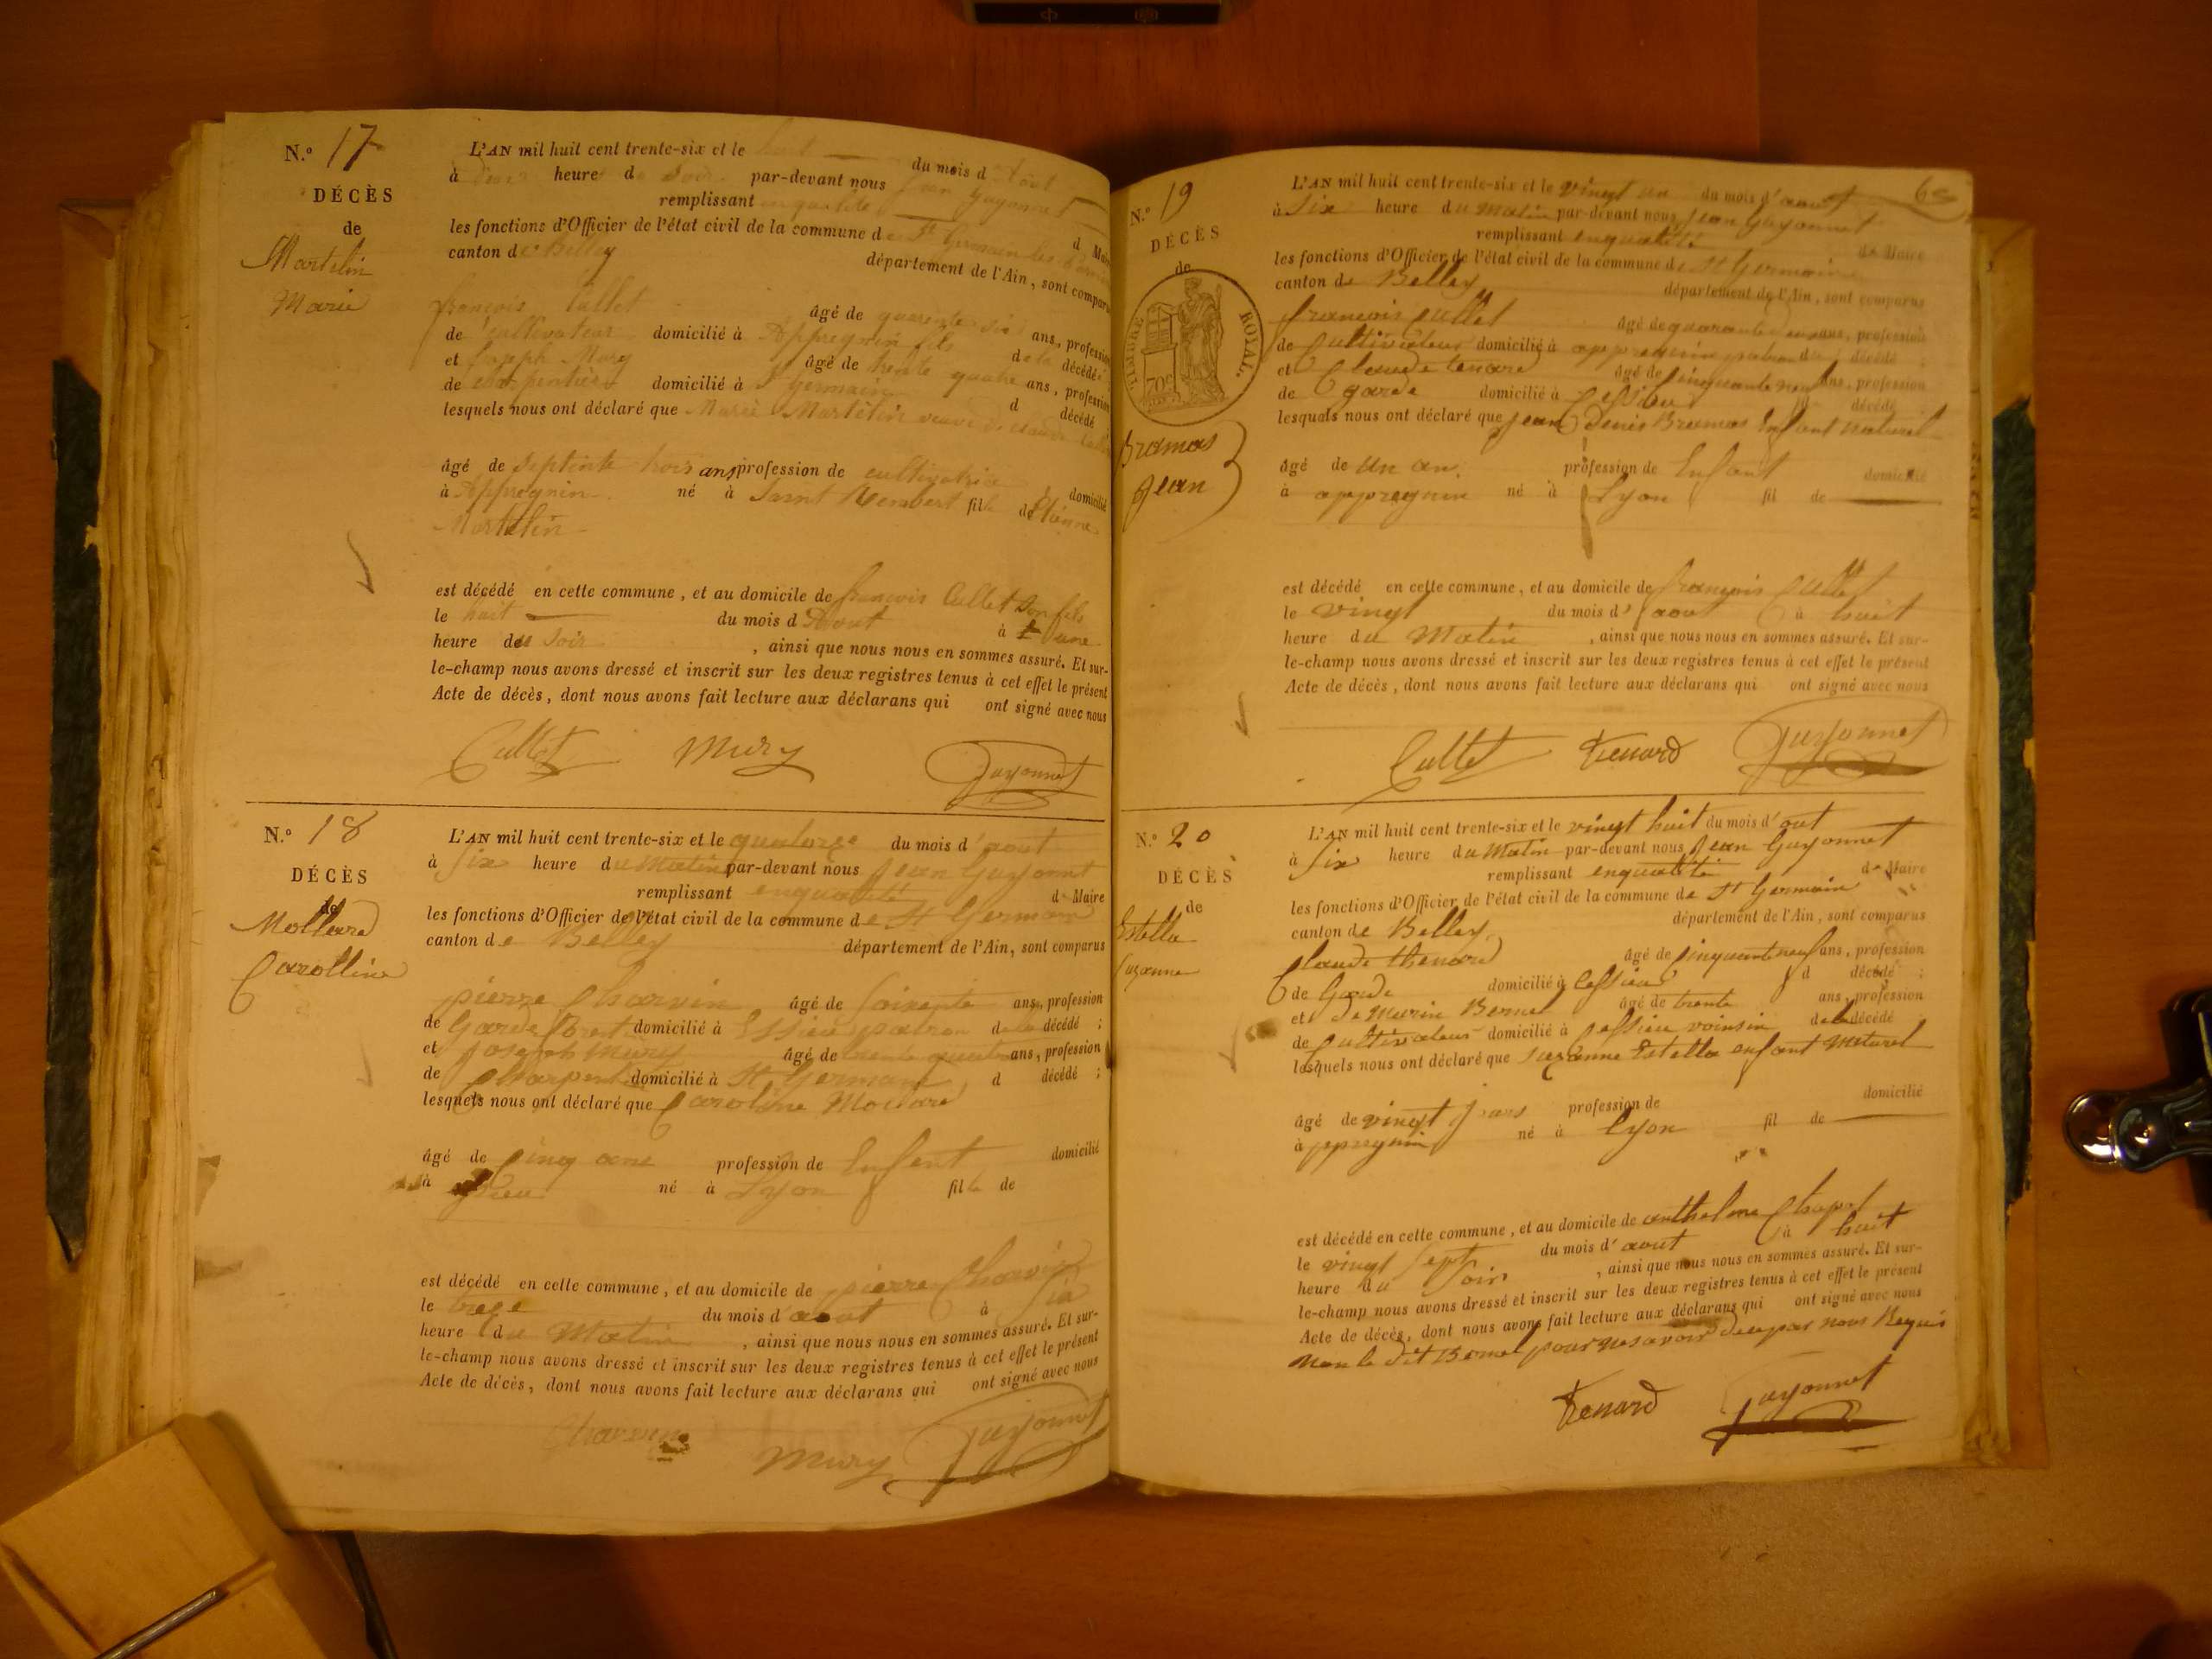 N.° 17
DÉCÈS
de
Martelin
Marie
L'AN mil huit cent trente-six et le huit du mois d'Aout
à heure du Soir par-devant nous Jean Guyonnet
remplissant en qualité d Maire
les fonctions d'Officier de l'état civil de la commune de St Germain les
canton de Belley département de l'Ain, sont comparus
françois Cullet âgé de quarente six ans, profession
de cultivateur domicilié à Appregnin fils de la décédé
et Joseph Mury âgé de trente quatre ans, profession
de charpentier domicilié à St Germain d décédé ;
lesquels nous ont déclaré que Marie Martelin veuve de Claude Cullet
âgé de septente trois ans profession de cultivatrice domicilié
à Appregnin né à Saint Rembert fille de Etienne
Martelin
est décédé en cette commune, et au domicile de francois Cullet son fils
le huit du mois d'Aout à une
heure du Soir , ainsi que nous nous en sommes assuré. Et sur-
le-champ nous avons dressé et inscrit sur les deux registres tenus à cet effet le présent
Acte de décès, dont nous avons fait lecture aux déclarans qui ont signé avec nous
Cullet Mury Guyonnet
N.° 18
DÉCÈS
de
Mollard
Carolline
L'AN mil huit cent trente-six et le quatorze du mois d'aout
à Six heure du Matin par-devant nous Jean Guyonnet
remplissant enqualité d Maire
les fonctions d'Officier de l'état civil de la commune de St Germain
canton de Belley département de l'Ain, sont comparus
pierre Charvin âgé de Soixente ans, profession
de Garde foret domicilié à Essieu patron de la décédé ;
et joseph Mury âgé de trente quatre ans, profession
de Charpentier domicilié à St Germain d décédé ;
lesquels nous ont déclaré que Caroline Mollard
âgé de Cinq ans profession de Enfent domicilié
à né à Lyon fille de
est décédé en cette commune, et au domicile de pierre Charvin
le treze du mois d'aout à Six
heure du Matin , ainsi que nous nous en sommes assuré. Et sur-
le-champ nous avons dressé et inscrit sur les deux registres tenus à cet effet le présent
Acte de décès, dont nous avons fait lecture aux déclarans qui ont signé avec nous
Charvin Mury Guyonnet
N.° 19
DÉCÈS
de
TIMBRE ROYAL
70c
Bramas
Jean
L'AN mil huit cent trente-six et le vingt un du mois d'aout
à Six heure du Matin par-devant nous Jean Guyonnet
remplissant enqualité d Maire
les fonctions d'Officier de l'état civil de la commune de St Germain
canton de Belley département de l'Ain, sont comparus
francois Cullet âgé de quarante ans, profession
de Cultivateur domicilié à appregnin patron du décédé ;
et Claude tenard âgé de Cinquante neuf ans, profession
de Garde domicilié à Cessieu décédé
lesquels nous ont déclaré que Jean Denis Bramas Enfant naturel
âgé de un an profession de Enfant domicilié
à appregnin né à Lyon fil de
est décédé en cette commune, et au domicile de françois Cullet
le vingt du mois d'aout à huit
heure du Matin , ainsi que nous nous en sommes assuré. Et sur-
le-champ nous avons dressé et inscrit sur les deux registres tenus à cet effet le présent
Acte de décès, dont nous avons fait lecture aux déclarans qui ont signé avec nous
Cullet Tenard Guyonnet
N.° 20
DÉCÈS
de
Estella
Suzanne
L'AN mil huit cent trente-six et le vingt huit du mois d'out
à Six heure du Matin par-devant nous Jean Guyonnet
remplissant enqualité d Maire
les fonctions d'Officier de l'état civil de la commune de St Germain
canton de Belley département de l'Ain, sont comparus
Claude thenard âgé de Cinquante neuf ans, profession
de Garde domicilié à Cessieu d décédé ;
et Bornel âgé de trente ans, profession
de Cultivateur domicilié à Cessieu voinsin de la décédé
lesquels nous ont déclaré que Suzanne Estella enfant naturel
âgé de vingt jours profession de domicilié
à ppregnin né à Lyon fil de
est décédé en cette commune, et au domicile de anthelme
le vingt Sept du mois d'aout à huit
heure du Soir , ainsi que nous nous en sommes assuré. Et sur-
le-champ nous avons dressé et inscrit sur les deux registres tenus à cet effet le présent
Acte de décès, dont nous avons fait lecture aux déclarans qui ont signé avec nous
Non le dit Bornel pour ne savoir de par nous Requi
Tenard Guyonnet